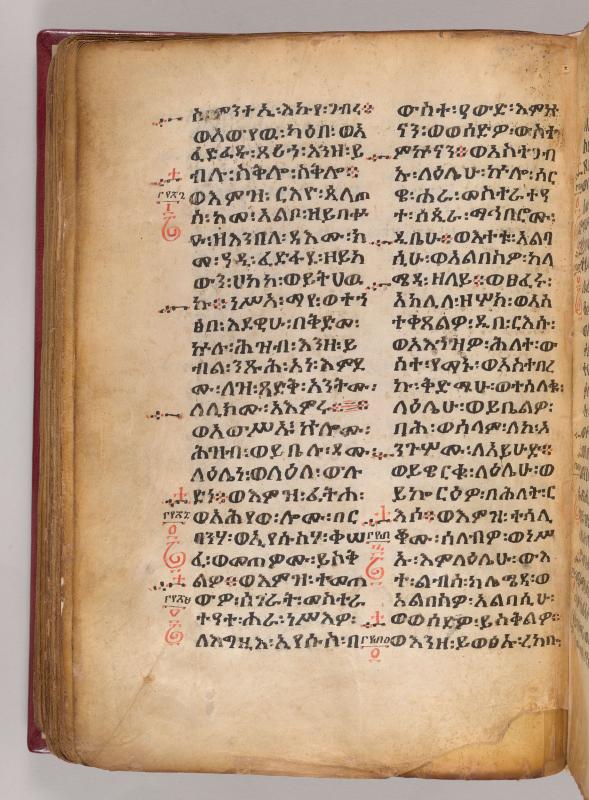 ምንተ፡እኩየ፡ገብረ።
ወአውየዉ፡ካዕበ፡ወአ
ፈድፈዱ፡ጸሪኀ፡እንዘ፡ይ
ብሉ፡ስቅሎ፡ስቅሎ።
ወእምዝ፡ርእዮ፡ጲላጦ
ስ፡ከመ፡አልቦ፡ዘይበቍ
ዖ፡ዘእንበለ፡ዳእሙ፡ከ
መ፡ዓዲ፡ፈድፋደ፡ዘይከ
ውን፡ሀከክ፡ወይትሀዉ
ኩ።ነሥአ፡ማየ፡ወተኀ
ፅበ፡እደዊሁ፡በቅድመ፡
ኵሉ፡ሕዝብ፡እንዘ፡ይ
ብል፡ንጹሕ፡አነ፡እምደ
ሙ፡ለዝ፡ጻድቅ፡አንትሙ፡
ለሊክሙ፡አእምሩ።
ወአውሥአ፡ኵሎሙ፡
ሕዝብ፡ወይቤሉ፡ደሙ፡
ላዕሌነ፡ወላዕለ፡ውሉ
ድነ።ወእምዝ፡ፈትሐ፡
ወአሕየወ፡ሎሙ፡በር
ባንሃ፡ወኢየሱስሃ፡ቀሠ
ፈ፡ወመጠዎሙ፡ይስቅ
ልዎ።ወእምዝ፡ተመጠ
ውዎ፡ሰገራት፡መስተራ
ትዓተ፡ሐራ፡ነሥእዎ፡
ለእግዚእ፡ኢየሱስ፡በ
ውስተ፡ዐውድ፡እምኵ
ናን፡ወወሰድዎ፡ውስተ
ምኵናን።ወአስተጋብ
ኡ፡ላዕሌሁ፡ኵሎ፡ሰር
ዌ፡ሐራ፡መስተራትዓ
ት፡ሰጲራ፡ማኅበሮሙ፡
ዲቤሁ።ወእተቱ፡አልባ
ሲሁ፡ወአልበስዎ፡ከለ
ሜዳ፡ዘለይ።ወፀፈሩ፡
አክሊለ፡ዘሦክ፡ወአስ
ተቀጸልዎ፡ዲበ፡ርእሱ፡
ወአእንዝዎ፡ሕለተ፡ው
ስተ፡የማኑ፡ወአስተበረ
ኩ፡ቅድሜሁ፡ወተሳለቁ፡
ላዕሌሁ፡ወይቤልዎ፡
በሕ፡ወሰላም፡ለከ፡አ
ንጉሦሙ፡ለአይሁድ።
ወይዌርቁ፡ላዕሌሁ፡ወ
ይኰርዕዎ፡በሕለት፡ር
እሶ።ወእምዝ፡ተሳሊ
ቆሙ፡ሰለቦዎ፡ወነሥ
ኡ፡እምላዕሌሁ፡ውእ
ተ፡ልብሰ፡ከሌሜዳ፡ወ
አልበስዎ፡አልባሲሁ፡
ወወሰድዎ፡ይስቅልዎ።
ወእንዘ፡ይወፅኡ፡ረከቡ፡